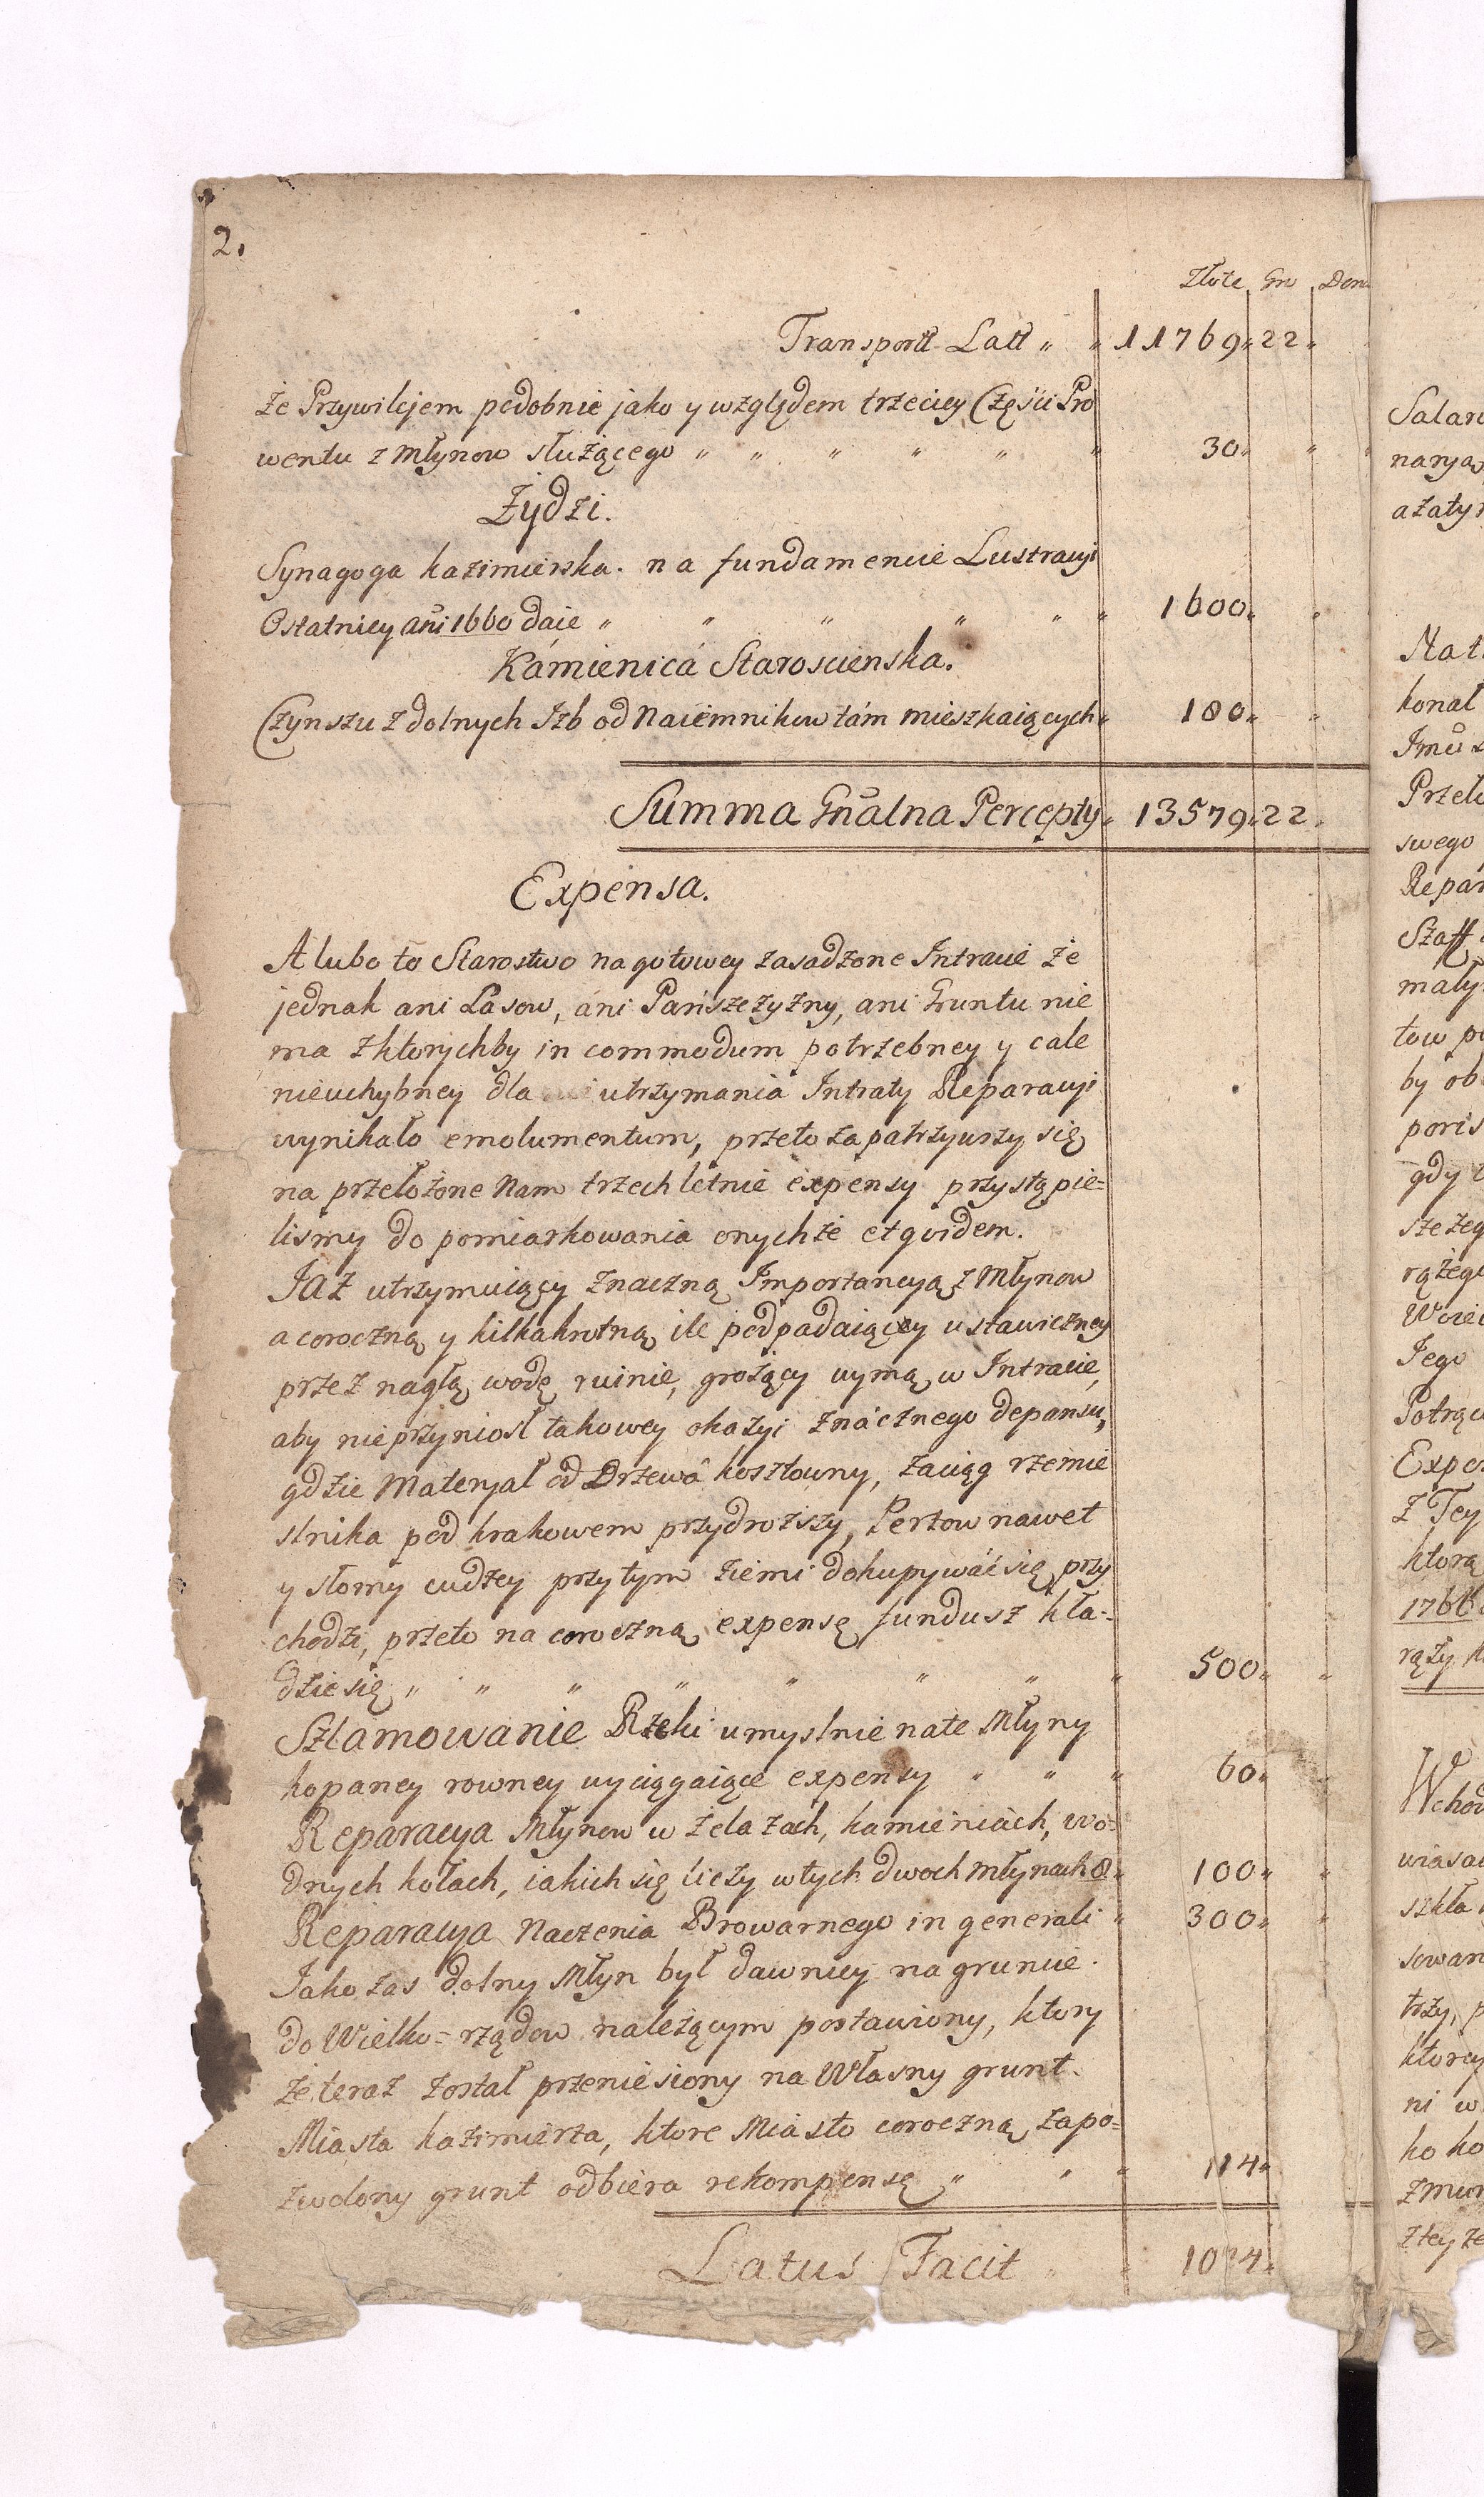 2.
Złote Gr Den
Transport Latt „ „ 11769„ 22„
że Przywilejem podobnie jako y względem trzeciey Części Pro
wentu z Młynow służącego „ „ „ „ „ „ 30„ „
Żydzi.
Synagoga kazimierska. na fundamencie Lustracyi
Ostatniey añi 1660 daie „ „ „ „ „ „ 1600„ „
Kámienicá Starościenska.
Czynszu z dolnych Izb od Naiemnikow tám mieszkaiących„ 180„ „
Summa Gñalna Percepty„ 13579„ 22„
Expensa.
A lubo to Starostwo na gotowey zasadzone Intracie że
jednak ani Lasow, áni Pańszczyzny, ani Gruntu nie
ma z ktorychby in commodum potrzebney y cale
nieuchybney dla utrzymania Intraty Reparacyi
wynikało emolumentum, przeto zapatrzywszy się
na przełożone Nam trzechletnie expensy przystąpie=
lismy do pomiarkowania onychże et qvidem.
JAZ utrzymuiący znaczną Importancyą z Młynow
a coroczną y kilkakrotną ile podpadaiący ustawiczney
przez nagłą wodę ruinie, grożący uymą w Intracie,
aby nieprzyniosł takowey okazyi znácznego depansu,
gdzie Materyał od Drzewá kosztowny, zaciąg rzemie
slnika pod krakowem przydroższy, Perzow nawet
y słomy cudzey przytym ziemi dokupywáć się przy
chodzi, przeto na coroczną expensę fundusz kła=
dzie się „ „ „ „ „ „ „ „ 500„ „
Szlamowanie Rzeki umyslnie na te Młyny
kopaney rowney wyciągaiące expensy „ „ „ 60„ „
Reparacya Młynow w żelazach, kamieniách, wo=
dnych kołach, iakich się liczy w tych dwoch młynach 8„ 100„ „
Reparacya Naczenia Browarnego in generali „ 300„ „
Jako zas dolny Młyn był dawniey na gruncie
do Wielko=rządow należącym postawiony, ktory
że teraz został przeniesiony na Własny grunt
Miasta kazimierza, ktore Miasto coroczną zapo=
zwolony grunt odbiera rekompensę „ „ „ 114„
Latus Facit „ „ 1074„
Salar
narya
a zaty
Nat
konał
Przeło
swego
Repar
Szaff
mały
tow po
by ob
poris
gdy
szczeg
rążego
Woie
Jego
Potrąc
Expe
z Tey
ktorą
1766
rąży
Wchod
wiasa
szkła
sowan
trzy, p
ktorey
ni w
ko ko
zmur
z tey ze